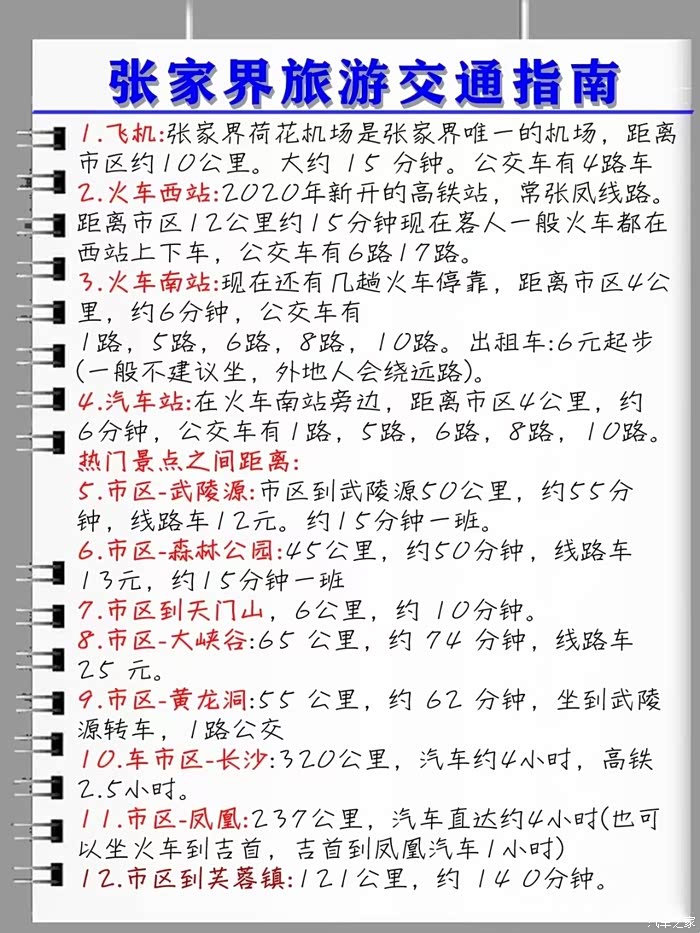 张家界旅游交通指南
1.飞机:张家界荷花机场是张家界唯一的机场，距离
市区约10公里。大约 15 分钟。公交车有4路车
2.火车西站:2020年新开的高铁站，常张凤线路。
距离市区12公里约15分钟现在客人一般火车都在
西站上下车，公交车有6路17路。
3.火车南站:现在还有几趟火车停靠，距离市区4公
里，约6分钟，公交车有
1路，5路，6路，8路，10路。出租车:6元起步
(一般不建议坐，外地人会绕远路)。
4.汽车站:在火车南站旁边，距离市区4公里，约
6分钟，公交车有1路，5路，6路，8路，10路。
热门景点之间距离:
5.市区-武陵源:市区到武陵源50公里，约55分
钟，线路车12元。约15分钟一班。
6.市区-森林公园:45公里，约50分钟，线路车
13元，约15分钟一班
7.市区到天门山，6公里，约 10分钟。
8.市区-大峡谷:65 公里，约 74 分钟，线路车
25 元。
9.市区-黄龙洞:55 公里，约 62 分钟，坐到武陵
源转车，1路公交
10.车市区-长沙:320公里，汽车约4小时，高铁
2.5小时。
11.市区-凤凰:237公里，汽车直达约4小时(也可
以坐火车到吉首，吉首到凤凰汽车1小时)
12.市区到芙蓉镇:121公里，约 140分钟。
汽车之家